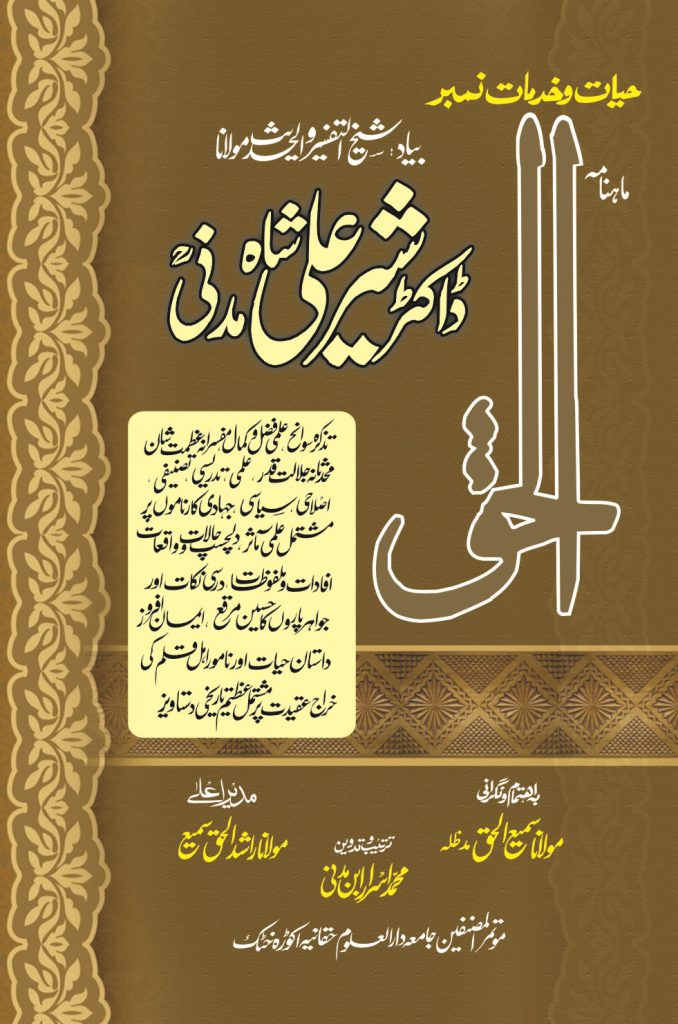 حیات و خدمات نمبر
ماہنامہ
الحق
بیاد: شیخ التفسیر والحدیث مولانا
ڈاکٹر شیر علی شاہ مدنیؒ
تذکرہ سوانح، علمی فضل و کمال، مفسرانہ عظمت شان
محدثانہ جلالت قدر، علمی، تدریسی، تصنیفی،
اصلاحی، سیاسی، جہادی کارناموں پر
مشتمل علمی مآثر، دلچسپ حالات و واقعات
افادات و ملفوظات، درسی نکات اور
جواہر پاروں کا حسین مرقع، ایمان افروز
داستان حیات اور نامور اہل قلم کی
خراج عقیدت پر مشتمل عظیم تاریخی دستاویز
باہتمام و نگرانی
مولانا سمیع الحق مدظلہ
مدیر اعلےٰ
مولانا راشد الحق سمیع
ترتیب و تدوین
محمد اسرار ابن مدنی
موتمر المصنفین جامعہ دارالعلوم حقانیہ اکوڑہ خٹک